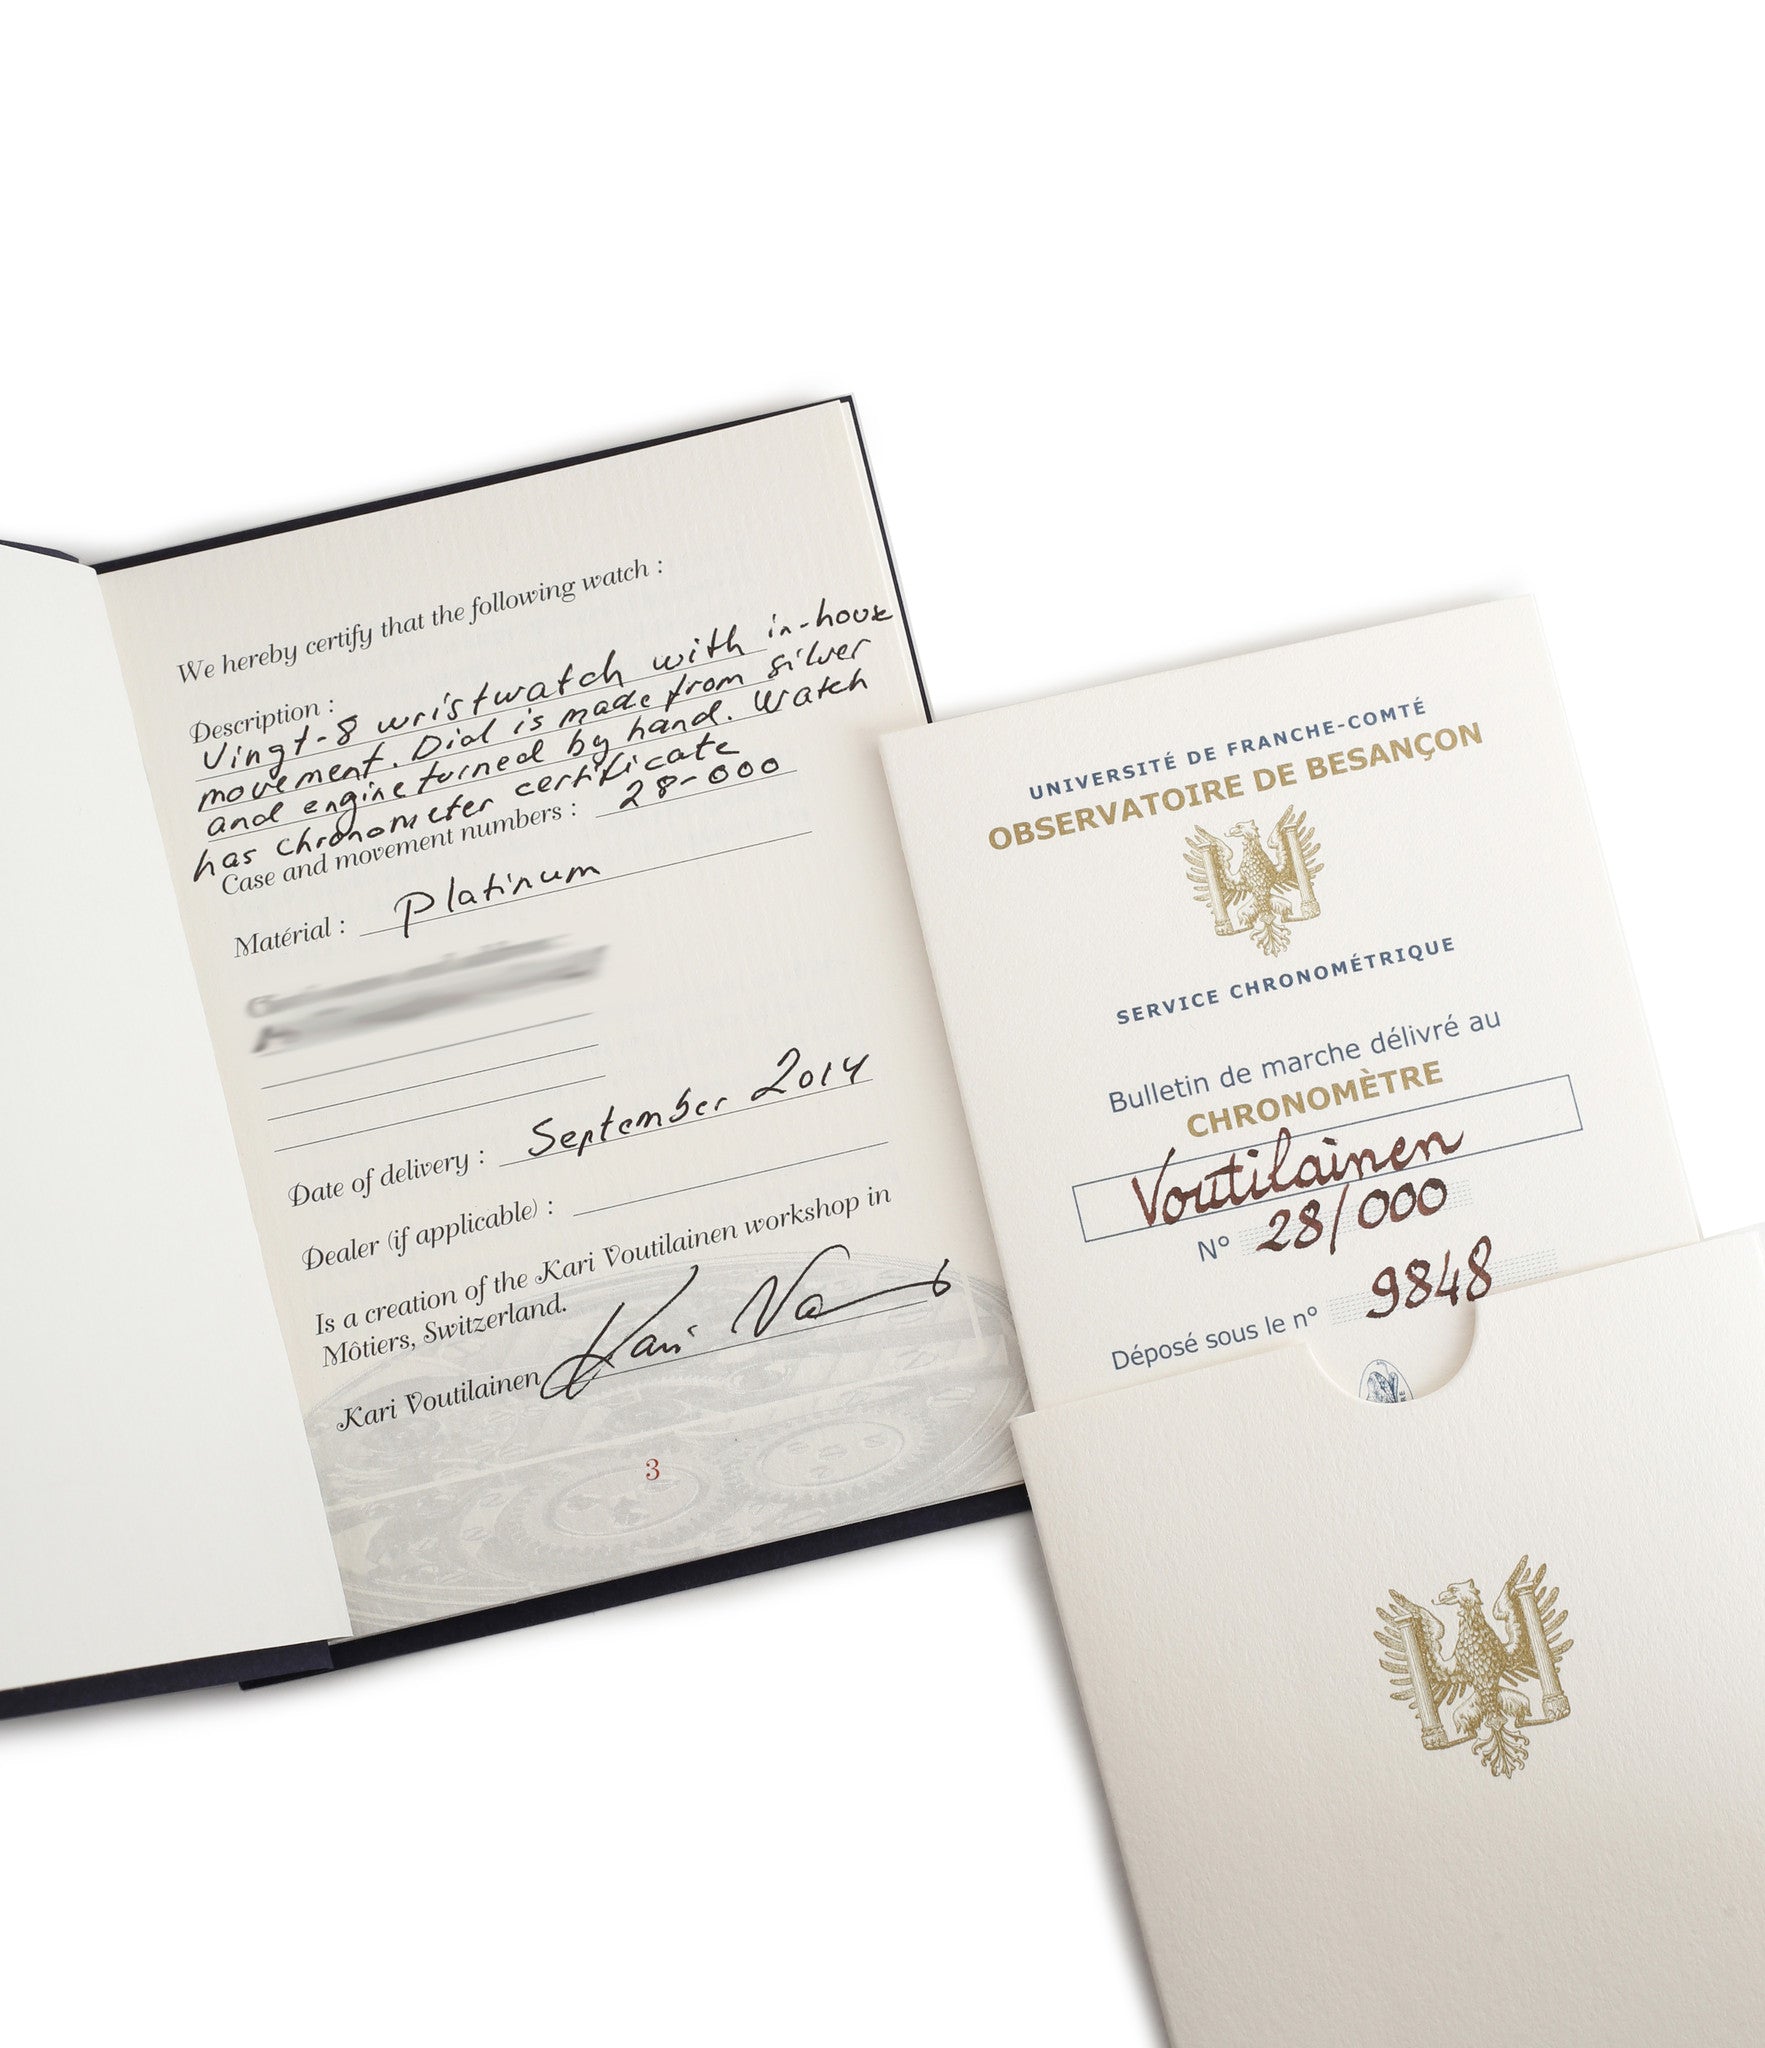 We hereby certify that the following watch :
Description :
Vingt-8 wristwatch with in-house
movement. Dial is made from silver
and engine turned by hand. Watch
has chronometer certificate
Case and movement numbers : 28-000
Matérial : Platinum
Date of delivery : September 2014
Dealer (if applicable) :
Is a creation of the Kari Voutilainen workshop in
Môtiers, Switzerland.
Kari Voutilainen
3
UNIVERSITÉ DE FRANCHE-COMTÉ
OBSERVATOIRE DE BESANÇON
SERVICE CHRONOMÉTRIQUE
Bulletin de marche délivré au
CHRONOMÈTRE
Voutilainen
N° 28/000
Déposé sous le n° 9848